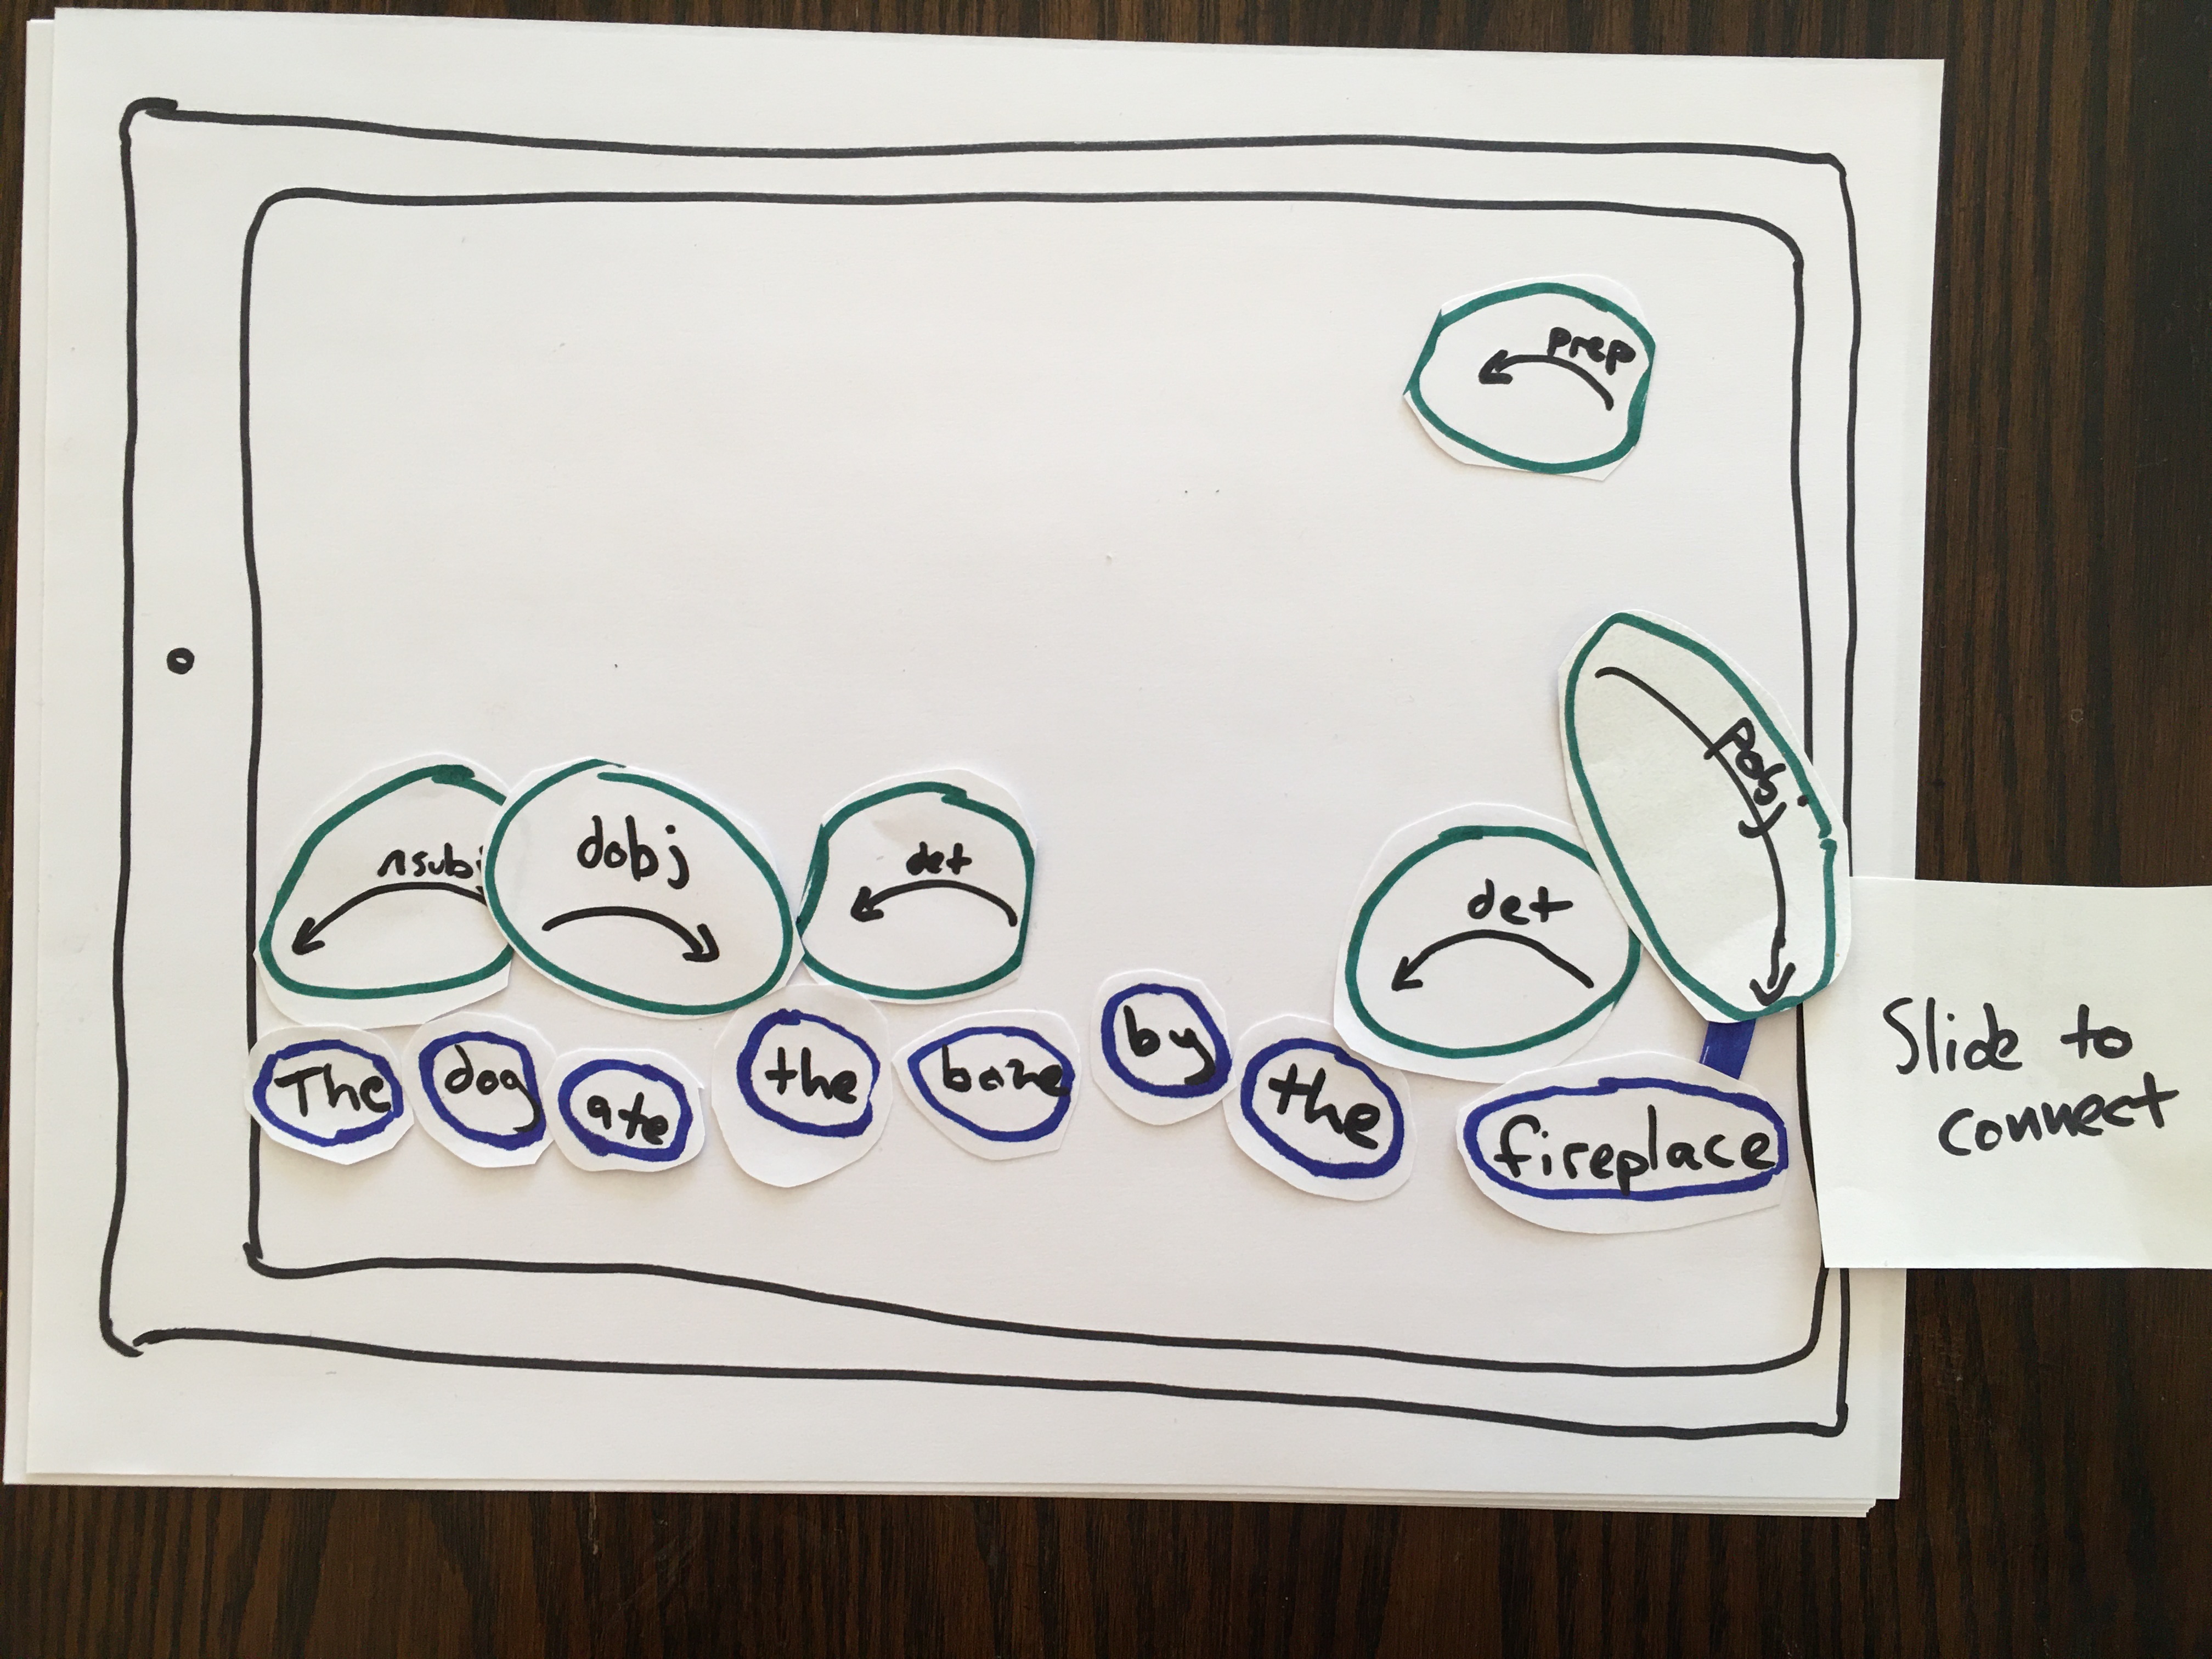 prep
pobj
nsubj
dobj
det
det
The dog ate the bone by the fireplace
Slide to
connect